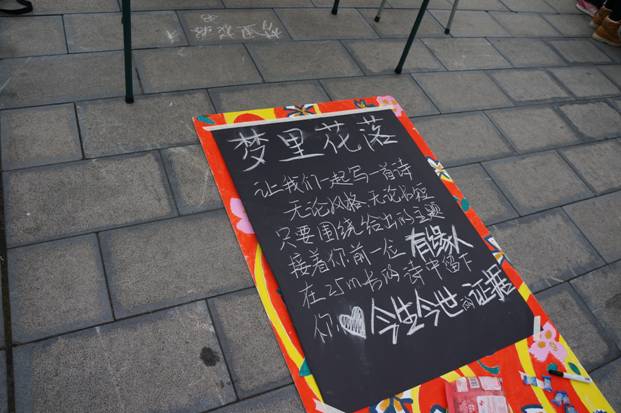 梦里花落
让我们一起写一首诗
无论风格、无论内容
只要围绕给出的主题
接着你前一位 有缘人
在25m长的诗中留下
你 今生今世的证据